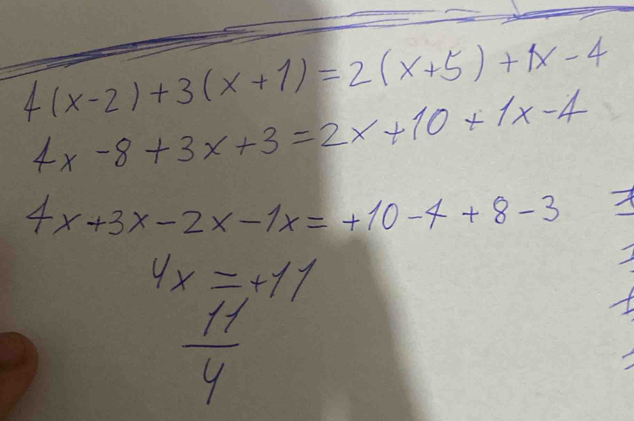 4(x-2)+3(x+1)=2(x+5)+1x-4
4x-8+3x+3=2x+10+1x-4
4x+3x-2x-1x=+10-4+8-3
4x=+11
11
4